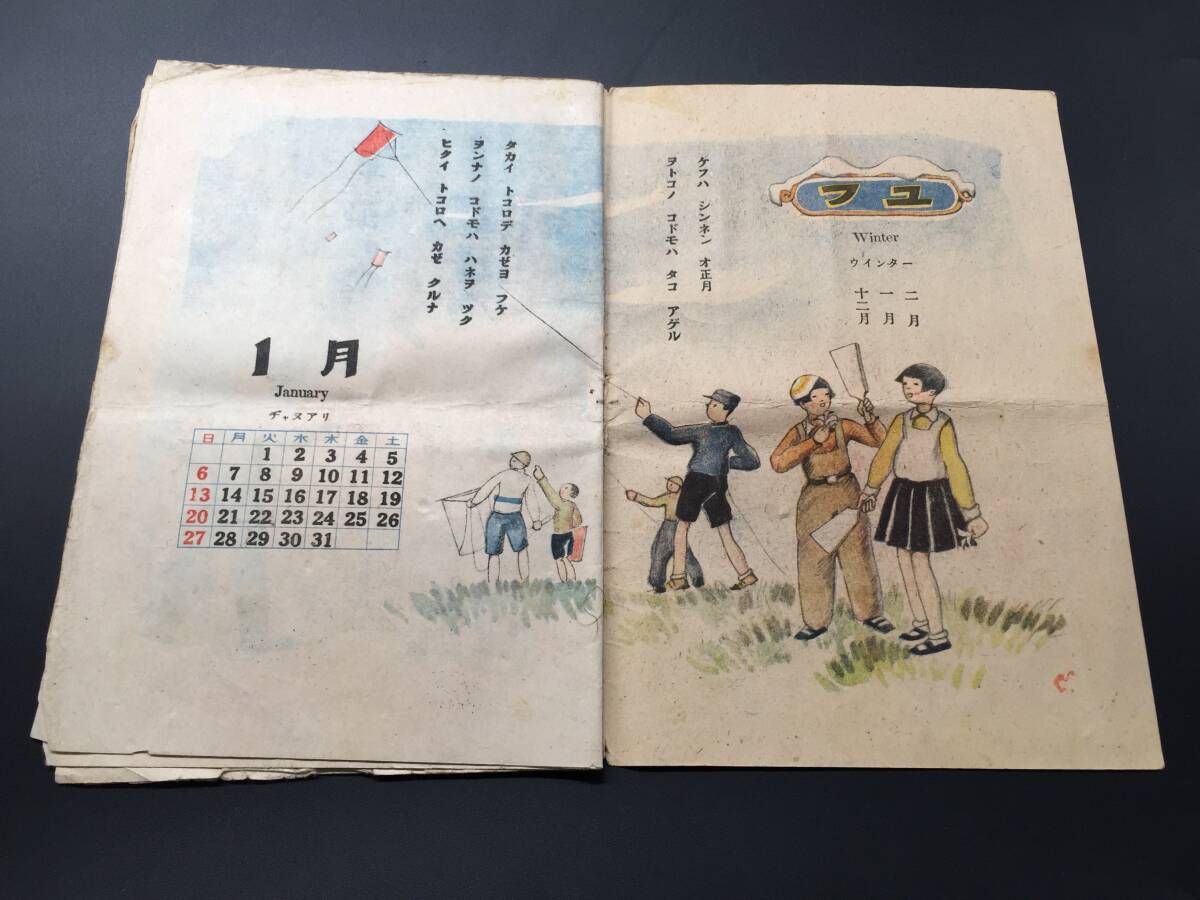 フユ
Winter
ウインター
十二月
一月
二月
ケフハ シンネン オ正月
ヲトコノ コドモハ タコ アゲル
タカイ トコロデ カゼヨ フケ
ヲンナノ コドモハ ハネヲ ツク
ヒクイ トコロヘ カゼ クルナ
1月
January
ヂャヌアリ
日 月 火 水 木 金 土
1 2 3 4 5
6 7 8 9 10 11 12
13 14 15 16 17 18 19
20 21 22 23 24 25 26
27 28 29 30 31